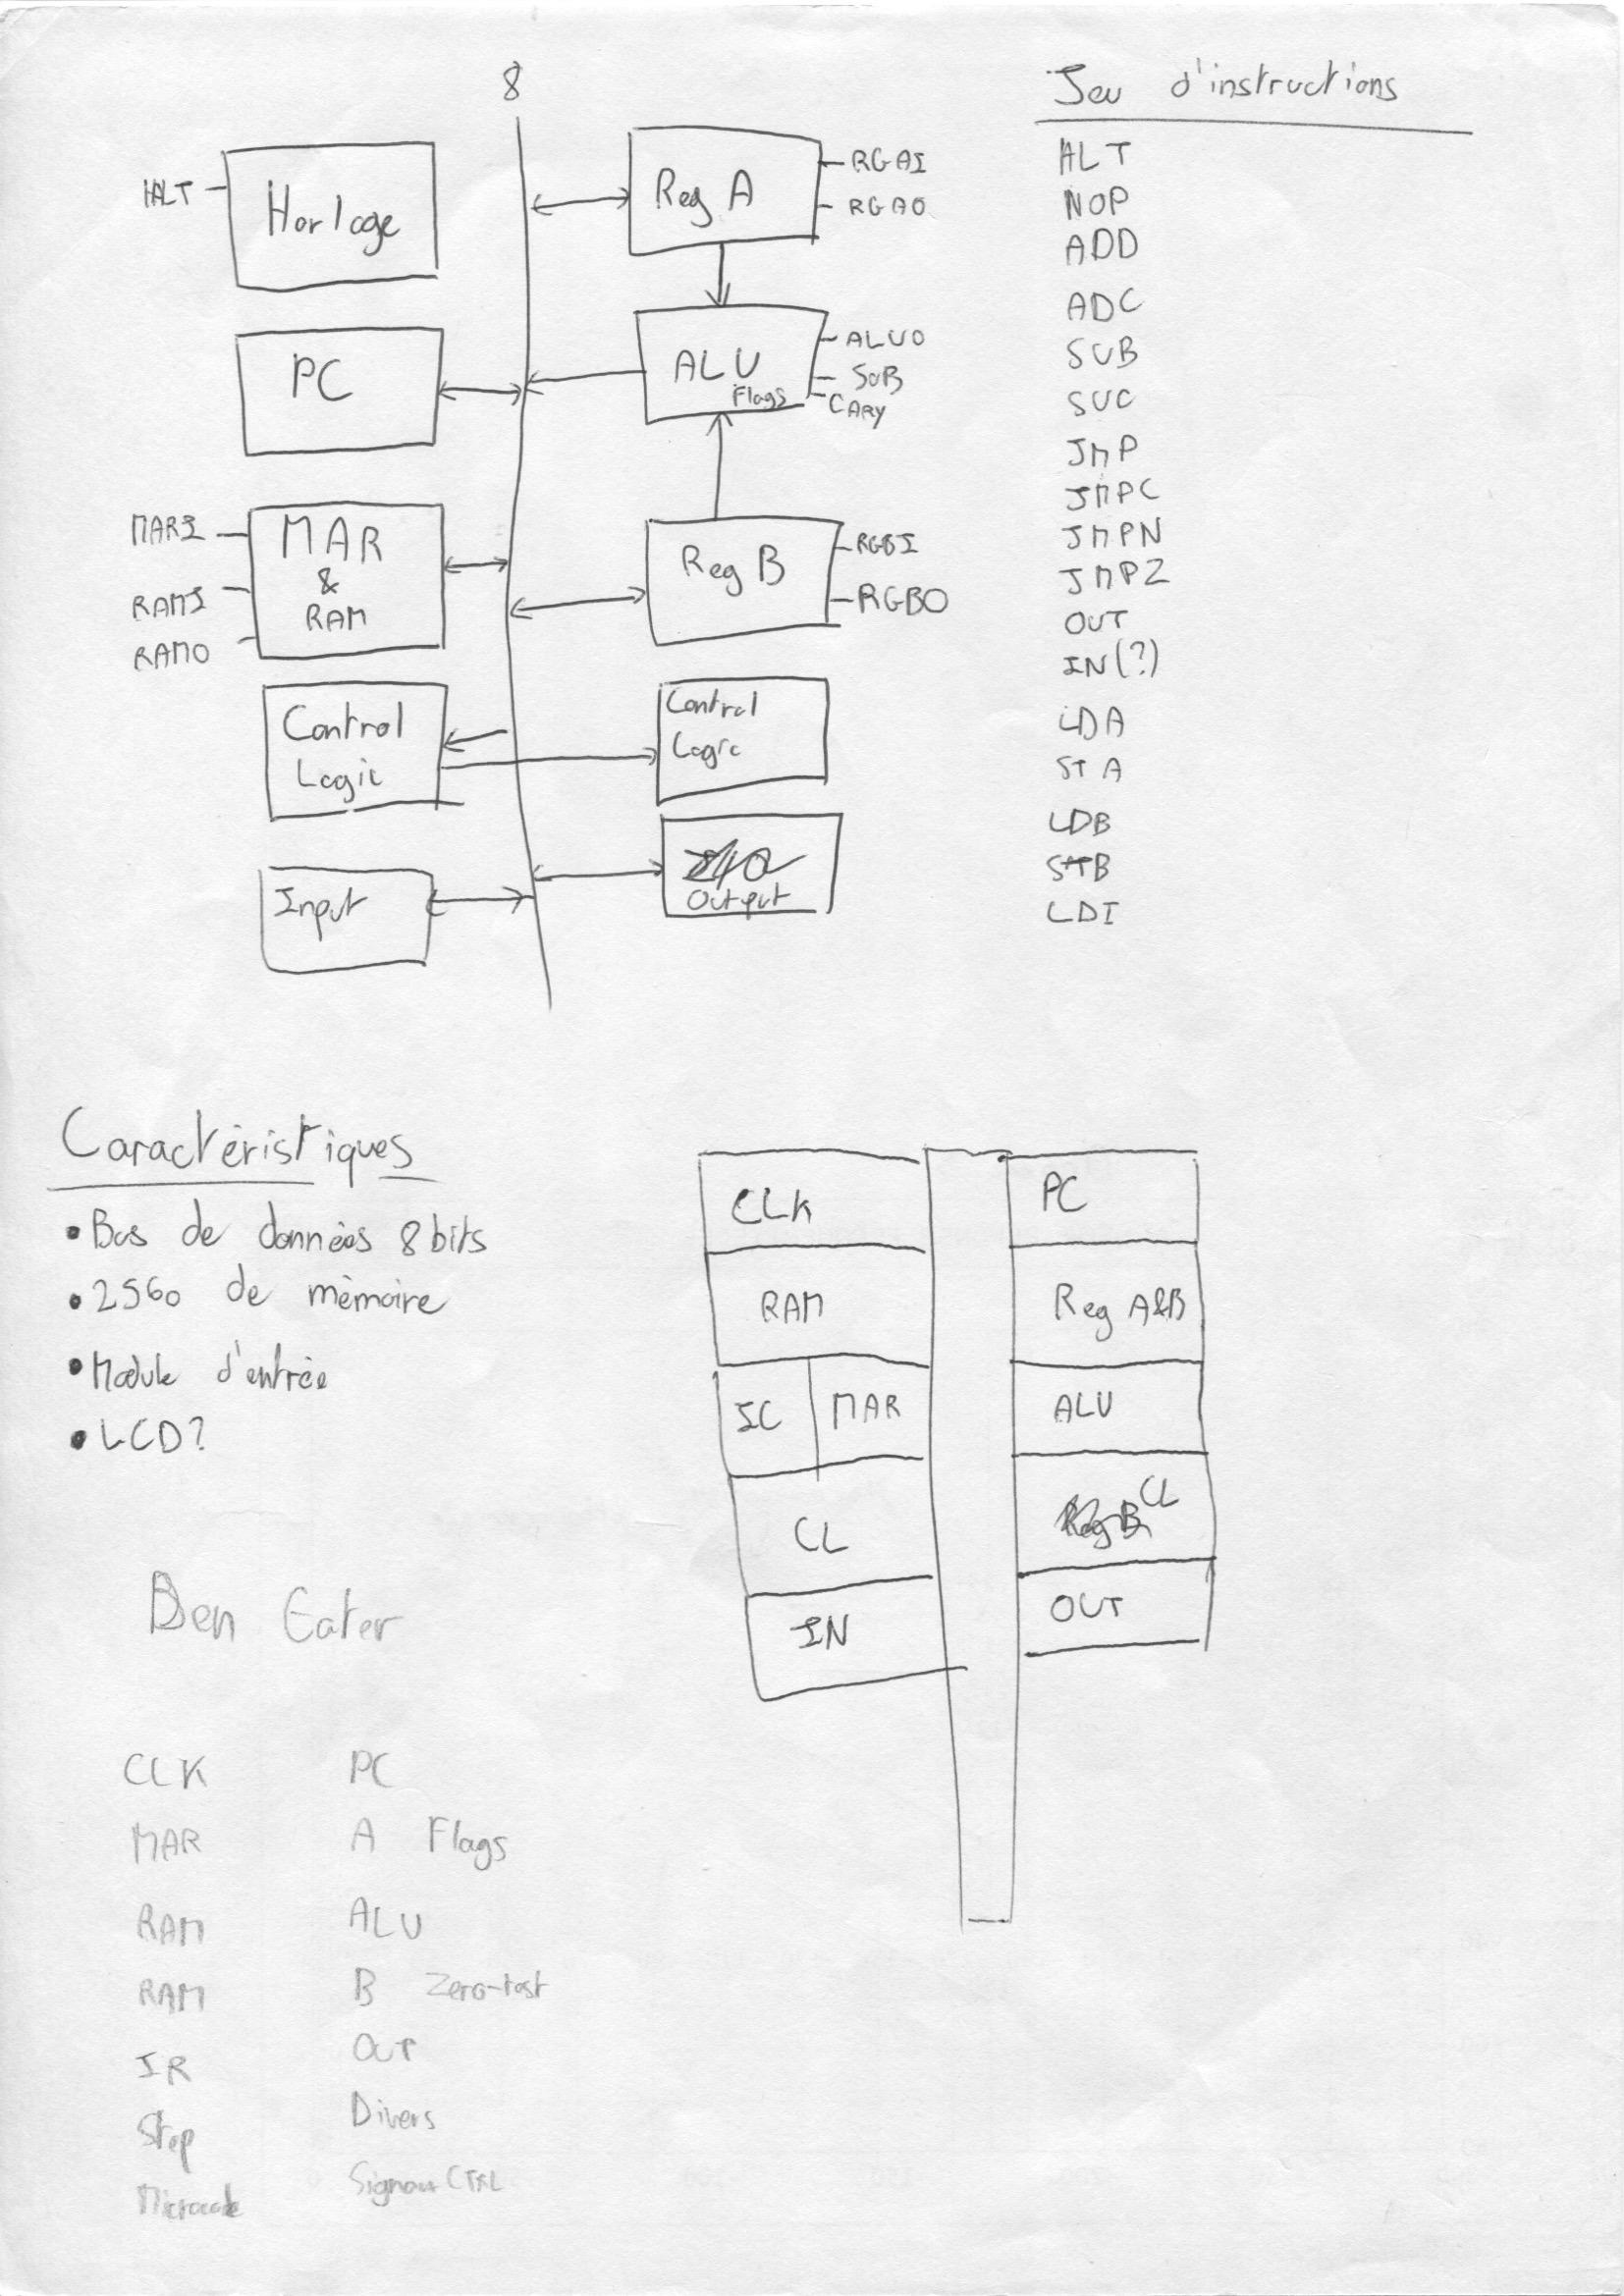 8
HLT
Horloge
PC
MARI
RAMI
RAMO
MAR
&
RAM
Control
Logic
Input
Reg A
RGAI
RGAO
ALU
Flags
ALUO
SUB
CARY
Reg B
RGBI
RGBO
Control
Logic
Output
Jeu d'instructions
HLT
NOP
ADD
ADC
SUB
SUC
JMP
JMPC
JMPN
JMPZ
OUT
IN(?)
LDA
STA
LDB
STB
LDI
Caractéristiques
• Bus de données 8 bits
• 256o de mémoire
• Module d'entrée
• LCD?
CLK
RAM
IC MAR
CL
IN
PC
Reg A&B
ALU
Reg B CL
OUT
Ben Eater
CLK PC
MAR A Flags
RAM ALU
RAM B Zero-test
IR OUT
Step Divers
Microcode Signaux CTRL